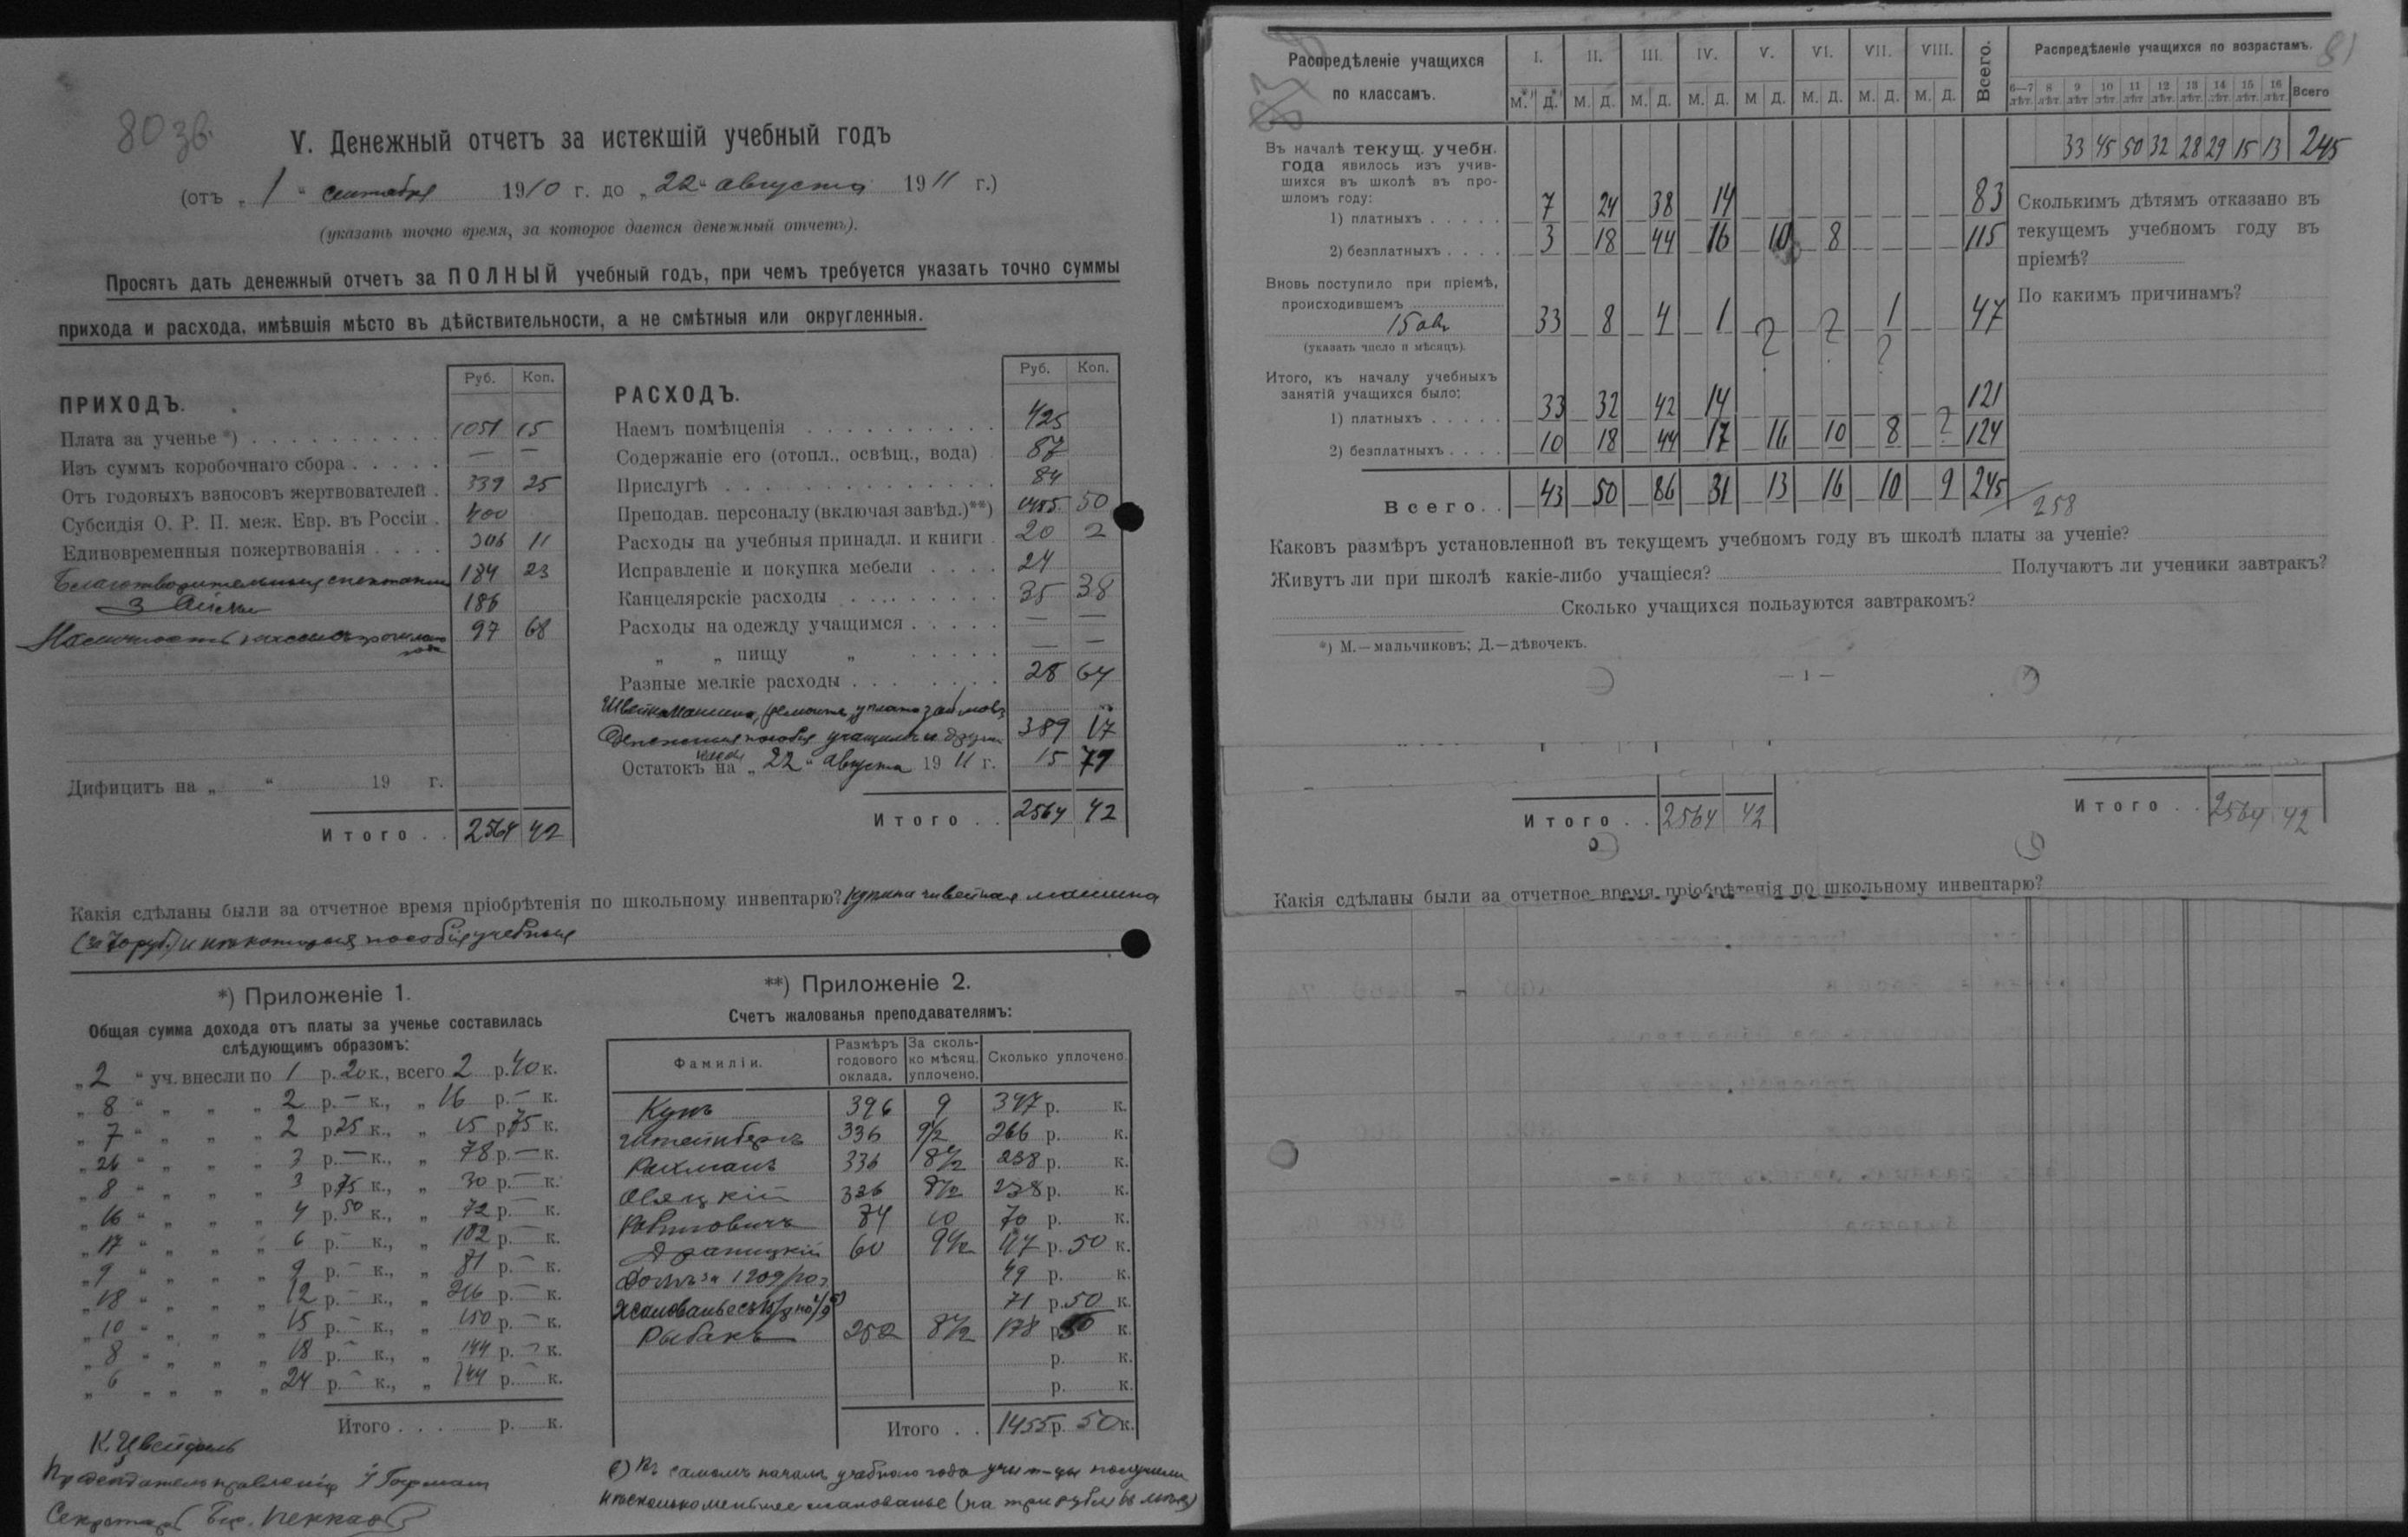 80 зв.
V. Денежный отчетъ за истекшій учебный годъ
(отъ „ 1 “ сентября 1910 г. до „ 22 “ августа 1911 г.)
(указать точно время, за которое дается денежный отчетъ).
Просятъ дать денежный отчетъ за ПОЛНЫЙ учебный годъ, при чемъ требуется указать точно суммы
прихода и расхода, имѣвшія мѣсто въ дѣйствительности, а не смѣтныя или округленныя.
ПРИХОДЪ. Руб. Коп.
Плата за ученье *) 1051 15
Изъ суммъ коробочнаго сбора — —
Отъ годовыхъ взносовъ жертвователей 339 25
Субсидія О. Р. П. меж. Евр. въ Россіи 400
Единовременныя пожертвованія 306 11
Благотворительныя спектакли 184 23
186
Наличность 97 68
Дифицитъ на „ “ 19 г.
Итого 2564 42
РАСХОДЪ. Руб. Коп.
Наемъ помѣщенія 425
Содержаніе его (отопл., освѣщ., вода) 87
Прислугѣ 84
Преподав. персоналу (включая завѣд.)**) 1455 50
Расходы на учебныя принадл. и книги 20 2
Исправленіе и покупка мебели 24
Канцелярскіе расходы 35 38
Расходы на одежду учащимся — —
„ „ пищу „ — —
Разные мелкіе расходы 28 64
Швейн. машина, ремонтъ, уплата займовъ
пособія учащимъ и 389 17
Остатокъ на „ 22 “ августа 1911 г. 15 71
Итого 2564 42
Какія сдѣланы были за отчетное время пріобрѣтенія по школьному инвентарю? куплена швейная машина
(за 70 руб.) и нѣкоторыя пособія учебныя
*) Приложеніе 1.
Общая сумма дохода отъ платы за ученье составилась
слѣдующимъ образомъ:
„ 2 “ уч. внесли по 1 р. 20 к., всего 2 р. 40 к.
„ 8 “ „ „ „ 2 р. — к., „ 16 р. — к.
„ 7 “ „ „ „ 2 р. 25 к., „ 15 р. 75 к.
„ 26 “ „ „ „ 3 р. — к., „ 78 р. — к.
„ 8 “ „ „ „ 3 р. 75 к., „ 30 р. — к.
„ 16 “ „ „ „ 4 р. 50 к., „ 72 р. — к.
„ 17 “ „ „ „ 6 р. — к., „ 102 р. — к.
„ 9 “ „ „ „ 9 р. — к., „ 81 р. — к.
„ 18 “ „ „ „ 12 р. — к., „ 216 р. — к.
„ 10 “ „ „ „ 15 р. — к., „ 150 р. — к.
„ 8 “ „ „ „ 18 р. — к., „ 144 р. — к.
„ 6 „ „ „ „ 24 р. — к., „ 144 р. — к.
Итого . . . р. к.
**) Приложеніе 2.
Счетъ жалованья преподавателямъ:
Фамиліи. Размѣръ годового оклада. За сколько мѣсяц. уплочено. Сколько уплочено.
Кунъ 396 9 347 р. к.
Штейнбергъ 336 9½ 266 р. к.
Рахманъ 336 8½ 238 р. к.
336 8½ 238 р. к.
Рабиновичъ 84 10 70 р. к.
60 9½ 47 р. 50 к.
за 1909/10 49 р. к.
Жалованье 71 р. 50 к.
Рыбакъ 252 8½ 178 р. 50 к.
р. к.
р. к.
Итого . . 1455 р. 50 к.
Предсѣдатель правленія Гофманъ
Секретарь
Въ самомъ началѣ учебнаго года получили
нѣсколько меньшее жалованье (на три рубля въ мѣсяц)
81
Распредѣленіе учащихся по классамъ. I. II. III. IV. V. VI. VII. VIII. Всего.
М.*) Д.*) М. Д. М. Д. М. Д. М Д. М. Д. М. Д. М. Д.
Въ началѣ текущ. учебн.
года явилось изъ учив-
шихся въ школѣ въ про-
шломъ году:
1) платныхъ 7 24 38 14 — — — — 83
2) безплатныхъ 3 18 44 16 10 8 — — 115
Вновь поступило при пріемѣ,
происходившемъ
15 авг 33 8 4 1 ? ? 1 ? 47
(указать число и мѣсяцъ).
Итого, къ началу учебныхъ
занятій учащихся было:
1) платныхъ 33 32 42 14 — — — — 121
2) безплатныхъ 10 18 44 17 16 10 8 ? 124
Всего 43 50 86 31 13 16 10 9 245
258
Распредѣленіе учащихся по возрастамъ.
6—7 лѣт. 8 лѣт. 9 лѣт 10 лѣт. 11 лѣт 12 лѣт. 13 лѣт. 14 лѣт. 15 лѣт. 16 лѣт. Всего
33 45 50 32 28 29 15 13 245
Сколькимъ дѣтямъ отказано въ
текущемъ учебномъ году въ
пріемѣ?
По какимъ причинамъ?
Каковъ размѣръ установленной въ текущемъ учебномъ году въ школѣ платы за ученіе?
Живутъ ли при школѣ какіе-либо учащіеся? Получаютъ ли ученики завтракъ?
Сколько учащихся пользуются завтракомъ?
*) М.—мальчиковъ; Д.—дѣвочекъ.
— 1 —
Итого . . 2564 42
Итого . . 2564 42
Какія сдѣланы были за отчетное время пріобрѣтенія по школьному инвентарю?